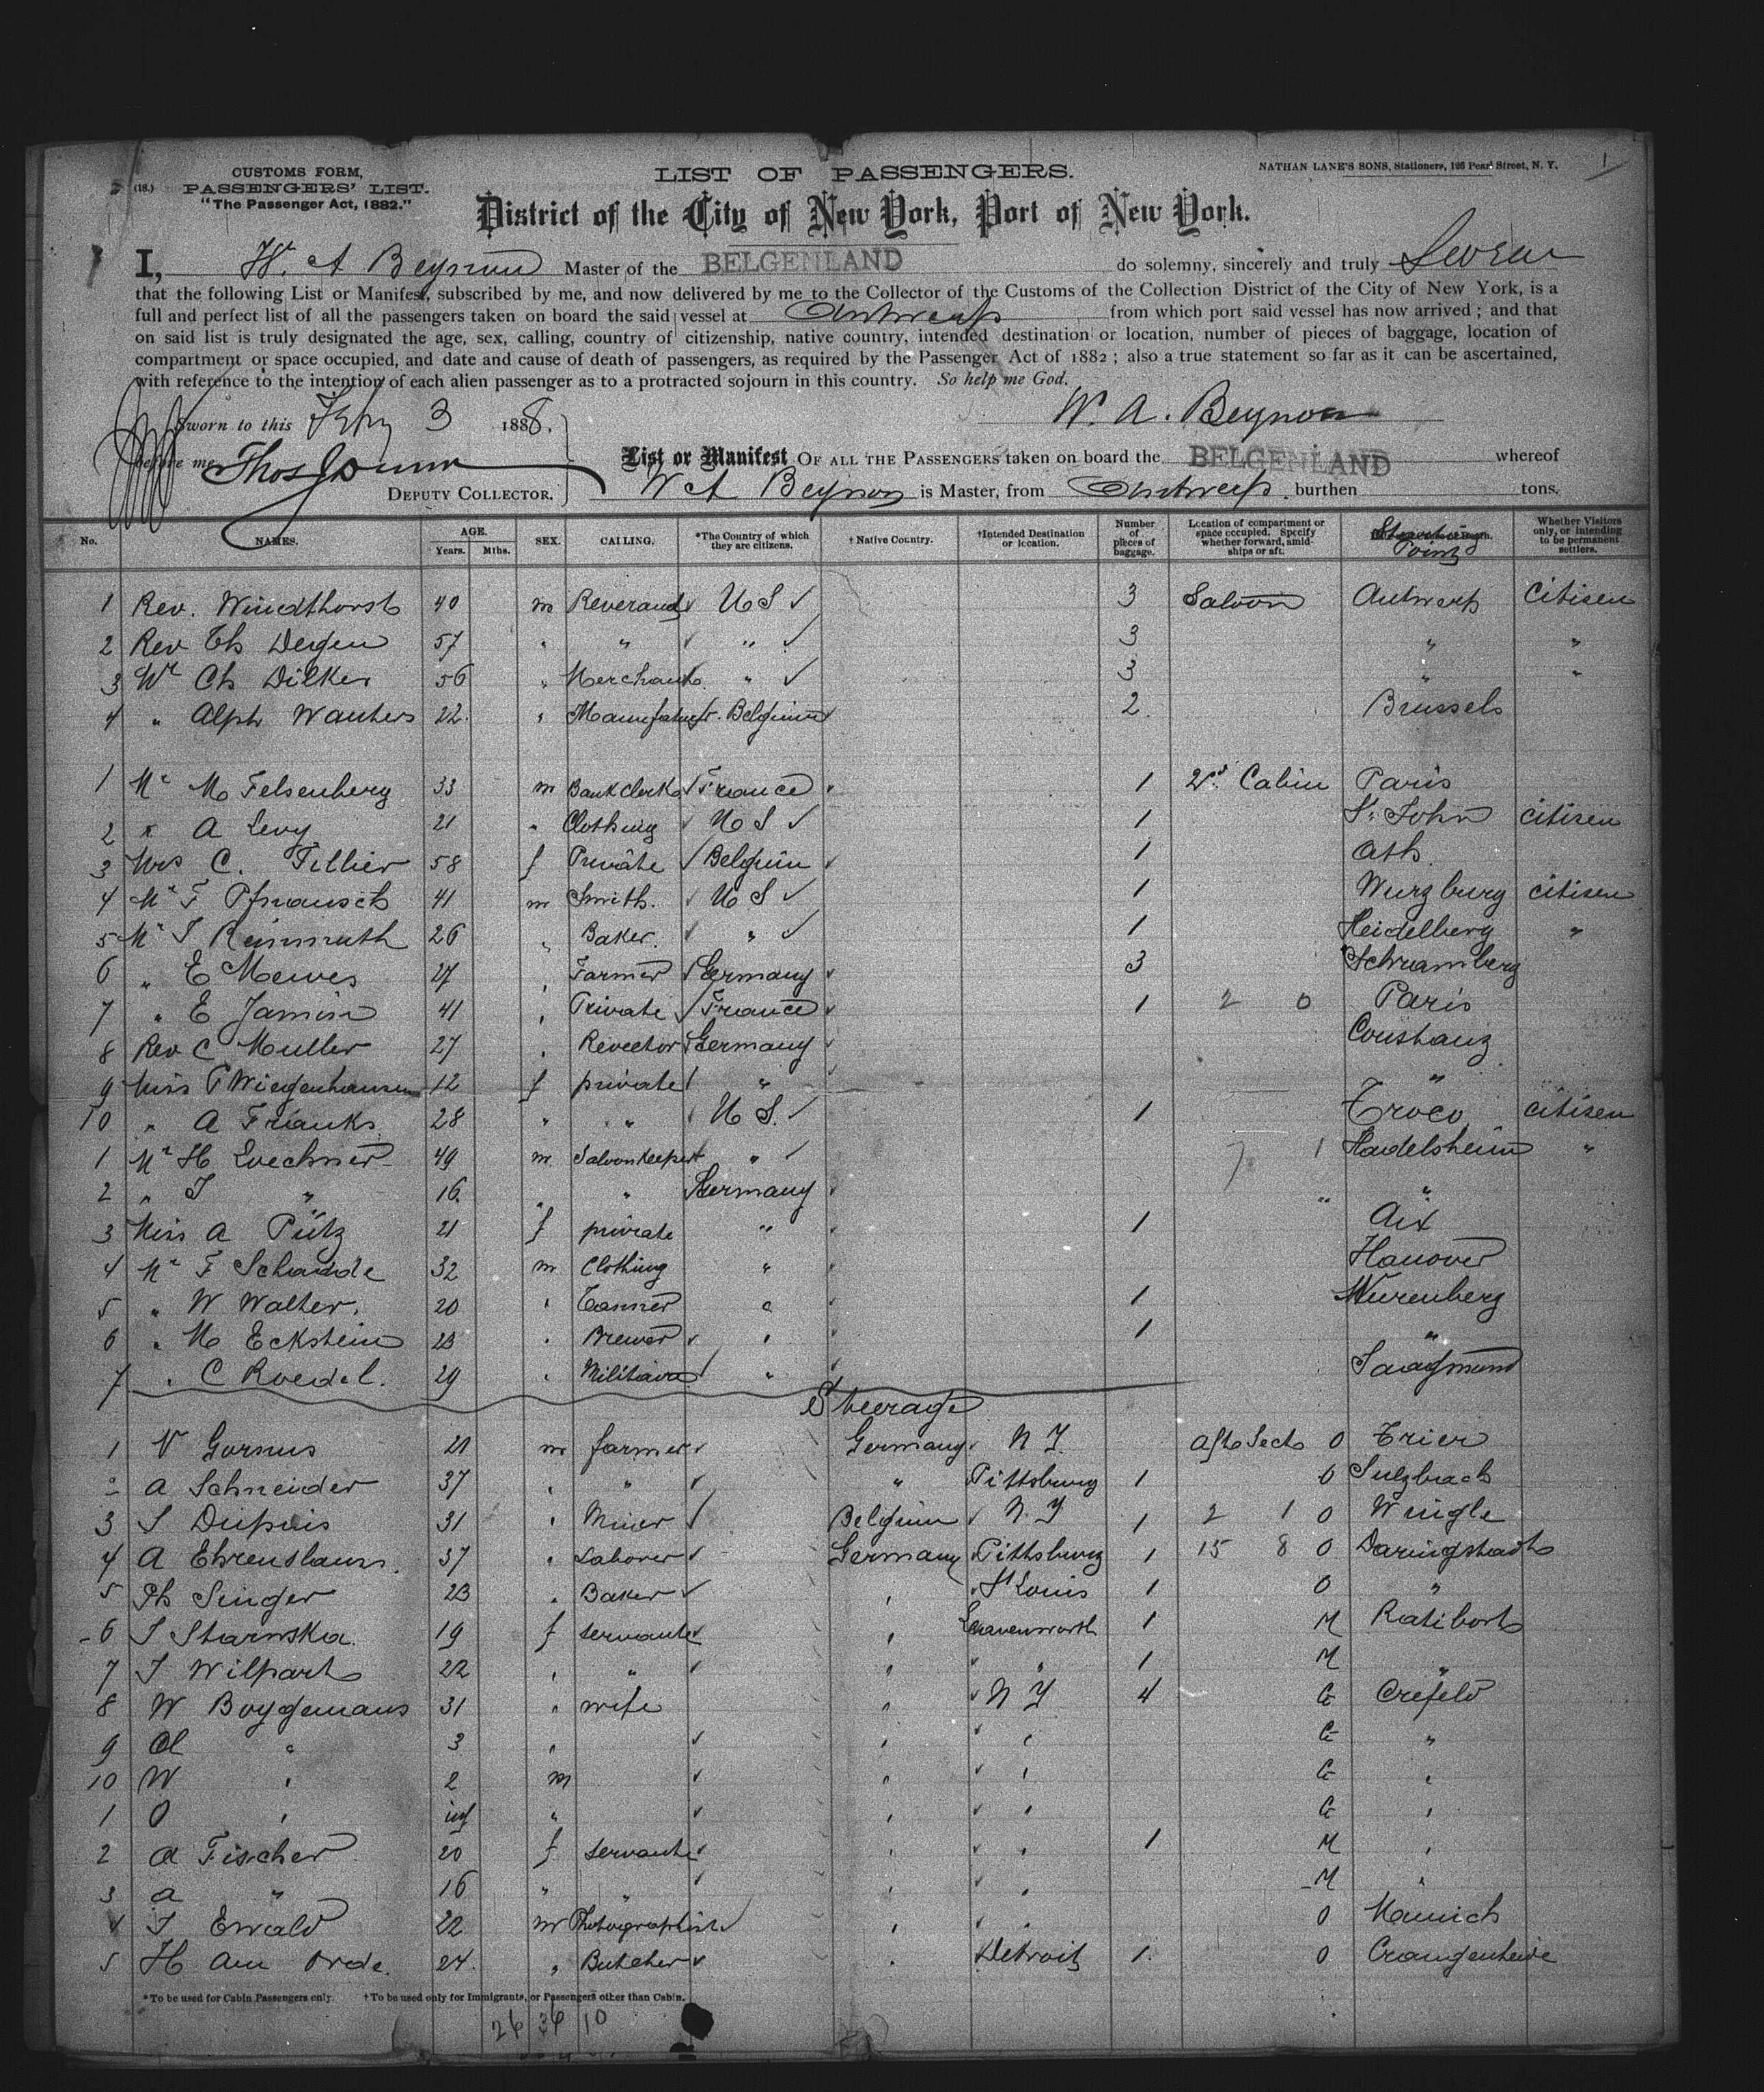 CUSTOMS FORM,
(18.) PASSENGERS' LIST.
"The Passenger Act, 1882."
LIST OF PASSENGERS.
NATHAN LANE'S SONS, Stationers, 126 Pearl Street, N. Y.
1
District of the City of New York, Port of New York.
I, W. A Beynon Master of the BELGENLAND do solemny, sincerely and truly Swear
that the following List or Manifest, subscribed by me, and now delivered by me to the Collector of the Customs of the Collection District of the City of New York, is a
full and perfect list of all the passengers taken on board the said vessel at Antwerp from which port said vessel has now arrived ; and that
on said list is truly designated the age, sex, calling, country of citizenship, native country, intended destination or location, number of pieces of baggage, location of
compartment or space occupied, and date and cause of death of passengers, as required by the Passenger Act of 1882 ; also a true statement so far as it can be ascertained,
with reference to the intention of each alien passenger as to a protracted sojourn in this country. So help me God.
W. A. Beynon
Sworn to this Feby 3 1888.
before me Thos Dunn
DEPUTY COLLECTOR.
List or Manifest OF ALL THE PASSENGERS taken on board the BELGENLAND whereof
W A Beynon is Master, from Antwerp. burthen tons.
No. NAMES. AGE. Years. Mths. SEX. CALLING. *The Country of which they are citizens. †Native Country. †Intended Destination or location. Number of pieces of baggage. Location of compartment or space occupied. Specify whether forward, amidships or aft. Starting Point Whether Visitors only, or intending to be permanent settlers.
1 Rev. Windthorst 40 m Reverand ✓ U S ✓ 3 Saloon Antwerp Citisen
2 Rev Th Degen 57 " " ✓ " ✓ 3 " "
3 Mr Ch Dilker 56 " Merchant " ✓ 3 " "
4 " Alph Wauters 22. " Manufactur Belgium ✓ 2 Brussels
1 Mr M Felsenberg 33 m Bank clerk ✓ France ✓ 1 2nd Cabin Paris
2 " A Levy 21 " Clothing ✓ U S ✓ 1 St. John citisen
3 Mrs C. Tillier 58 f Private ✓ Belgium ✓ 1 Ath.
4 Mr F Pfrausch 41 m Smith. ✓ U S ✓ 1 Wurzburg citisen
5 Mr J Reinmuth 26 " Baker. ✓ " ✓ 1 Heidelberg "
6 " E Mewes 27 " Farmer ✓ Germany ✓ 3 Schramberg
7 " E Jamin 41 " Private ✓ France ✓ 1 2 0 Paris
8 Rev C Muller 27 " Germany ✓ Constanz
9 Miss Wiegenhausen 12 f private " ✓ "
10 " A Franks 28 " " ✓ U S. ✓ 1 citisen
1 Mr H Loechner 49 m Saloonkeeper " ✓ 7 1 Hadelsheim "
2 " J " 16 " " Germany ✓ " "
3 Miss A Pütz 21 f private " ✓ 1 Aix
4 Mr F Schadde 32 m Clothing " ✓ Hanover
5 " W Walter. 20 " Tanner " ✓ 1 Nurenberg
6 " M Eckstein 23 " Brewer ✓ " ✓ 1 "
7 " C Roedel. 29 " ✓ " ✓
Steerage
1 V Gornus 21 m farmer ✓ Germany ✓ N Y. Aft Sect 0 Trier
2 A Schneider 37 " " ✓ " Pittsburg 1 0 Sulzbach
3 S Dupuis 31 " Miner ✓ Belgium ✓ N. Y 1 2 1 0 Wingle
4 A 37 " Laborer ✓ Germany ✓ Pittsburg 1 15 8 0
5 Ph Singer 23 " Baker ✓ " St Louis 1 0 "
6 J Starnska 19 f servant ✓ " Leavenworth 1 M Ratibor
7 J Wilpart 22 " " ✓ " " " 1 M "
8 W Boygemans 31 " wife " ✓ N Y 4 C Crefeld
9 Cl " 3 " ✓ " ✓ " C "
10 W " 2 m ✓ " ✓ " C "
1 O " inf " ✓ " ✓ " C "
2 A Fischer 20 f servant ✓ " ✓ " 1 M "
3 A " 16 " " ✓ " ✓ " M "
4 J Ewald 22 m Photographist ✓ " ✓ " 0 Munich
5 H Am Orde. 24. " Butcher ✓ " Detroit 1. 0
*To be used for Cabin Passengers only. †To be used only for Immigrants, or Passengers other than Cabin.
26 36 10